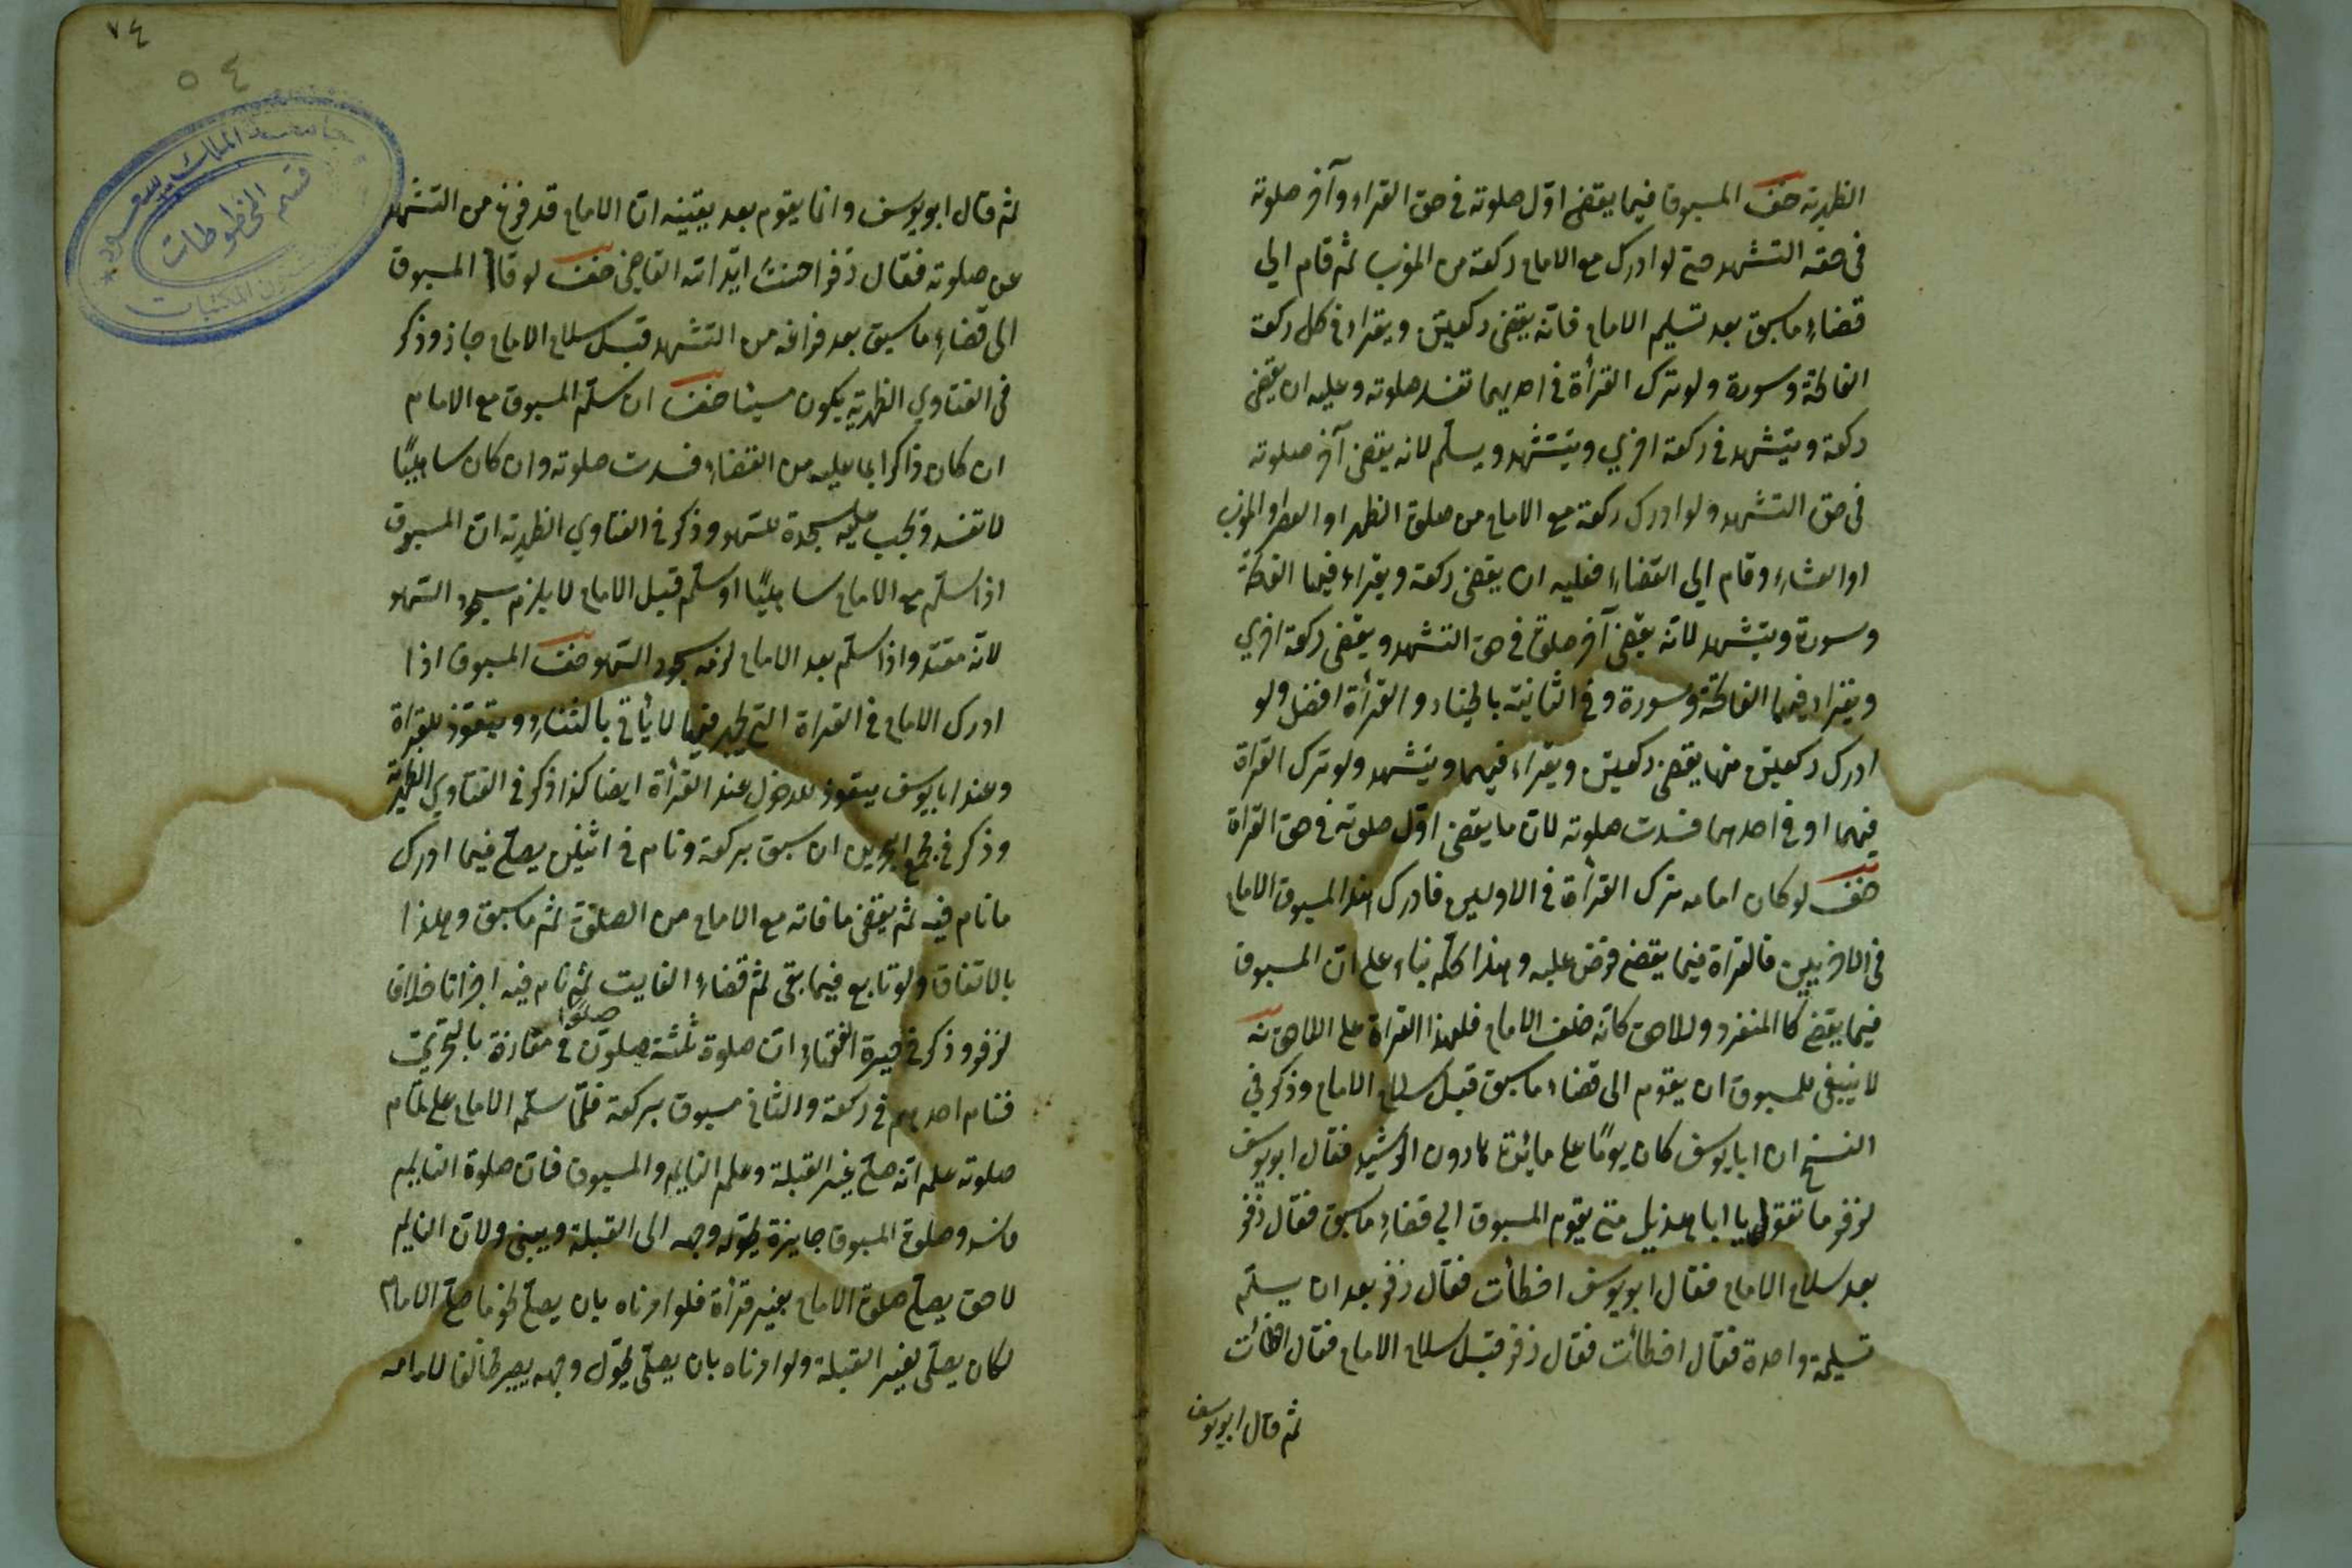 الظهيرية حنف المسبوق فيما يقضى اوّل صلوته فى حق القراءة وآخر صلوته
فى حقه التشهد حتى لو ادرك مع الامام ركعة من المغرب ثم قام الي
قضاء ما سبق بعد تسليم الامام فانّه يقضى ركعتين ويقراء فى كل ركعة
الفاتحة وسورة ولو ترك القرأة فى احديهما تفسد صلوته وعليه ان يقضى
ركعة ويتشهد فى ركعة اخري ويتشهد ويسلّم لانه يقضى آخر صلوته
فى حق التشهد ولو ادرك ركعة مع الامام من صلوة الظهر او العصر والمغرب
او العشاء وقام الي القضاء فعليه ان يقضى ركعة ويقراء فيها الفاتحة
وسورة ويتشهد لانّه يقضى آخر صلوة فى حق التشهد ويقضى ركعة اخري
ويقراء فيها الفاتحة وسورة وفى الثانية بالخيار والقرأة افضل ولو
ادرك ركعتين منها يقضى ركعتين ويقراء فيهما ويتشهد ولو ترك القراة
فيهما او فى احدهما فسدت صلوته لان ما يقضى اوّل صلوته فى حق القراة
حنف لو كان امامه ترك القرأة فى الاوليين فادرك هذا المسبوق الامام
فى الاخريين فالقراة فيما يقضى فرض عليه وهذا كلّه بناء على انّ المسبوق
فيما يقضى كالمنفرد واللاحق كانّه خلف الامام فلهذا القراة على اللاحق نه
لا ينبغى للمسبوق ان يقوم الى قضاء ما سبق قبل سلام الامام وذكر في
النسخ ان ابا يوسف كان يومًا على مائدة هارون الرشيد فقال ابو يوسف
لزفر ما تقول يا ابا هذيل متى يقوم المسبوق الي قضاء ما سبق فقال زفر
بعد سلام الامام فقال ابو يوسف اخطأت فقال زفر بعد ان يسلّم
تسليمة واحدة فقال اخطأت فقال زفر قبل سلام الامام فقال اخطأت
ثم قال ابو يوسف
٧٤
٥٤
جامعة الملك سعود
قسم المخطوطات
شئون المكتبات
ثم قال ابو يوسف وانما يقوم بعد يقينه انّ الامام قد فرغ من التشهد
عن صلوته فقال زفر احسنت ايّد الله القاضى حنف لو قام المسبوق
الى قضاءِ ما سبق بعد فراغه من التشهد قبل سلام الامام جاز وذكر
فى الفتاوي الظهيرية يكون مسيئا حنف ان سلّم المسبوق مع الامام
ان كان ذاكرا بما عليه من القضاء فسدت صلوته وان كان ساهيًا
لا تفسد وتجب عليه سجدة السهو وذكر فى الفتاوي الظهيرية انّ المسبوق
اذا سلّم مع الامام ساهيًا او سلّم قبل الامام لا يلزم سجود السهو
لانّه مقتد واذا سلّم بعد الامام لزمه سجود السهو حنف المسبوق اذا
ادرك الامام فى القراة التى يجهر فيها لا يأتى بالثناءِ ويتعوّذ للقراة
وعند ابا يوسف يتعوذ للدخول عند القرأة ايضا كذا ذكر فى الفتاوي الظهيرية
وذكر فى مجمع البحرين ان سبق بركعة ونام فى اثنتين يصلّى فيما ادرك
ما نام فيه ثم يقضى ما فاته مع الامام من الصلوة ثم ما سبق وهذا
بالاتفاق ولو تابع فيما بقى ثم قضاء الفايت ثم نام فيه اجزانا خلافا
لزفر وذكر فى حيرة الفقهاءِ انّ صلوة ثلثة صلّوا فى مفازة بالتحرّي
فنام احدهم فى ركعة والثانى مسبوق بركعة فلمّا سلّم الامام على تمام
صلوته علم انّه صلّى غير القبلة وعلم النايم والمسبوق فانّ صلوة النايم
فاسد وصلوة المسبوق جايزة يحوّله وجهه الى القبلة ويبنى ولانّ النايم
لاحق يصلّى صلوة الامام بغير قرأة فلو امرناه بان يصلّى نحو ما صلّى الامام
لكان يصلّى لغير القبلة ولو امرناه بان يصلّى يحوّل وجهه يصير مخالفا لامامه